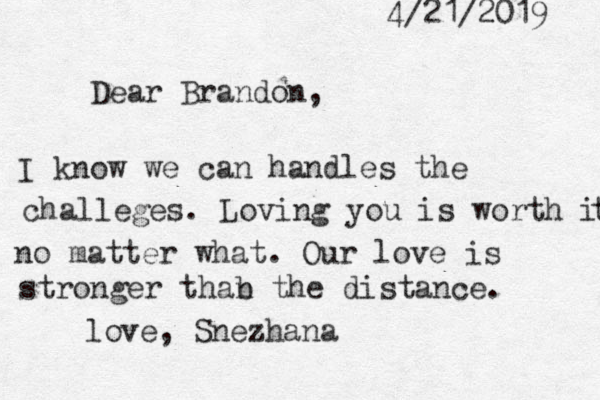 4/21/2019
Dear Brandon,
I know we can handles the
challeges. Loving you is worth it
no matter what. Our love is
stronger than the distance.
love, Snezhana